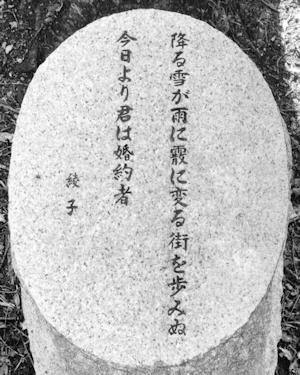 降る雪が雨に霙に変る街を歩みぬ
今日より君は婚約者
綾子